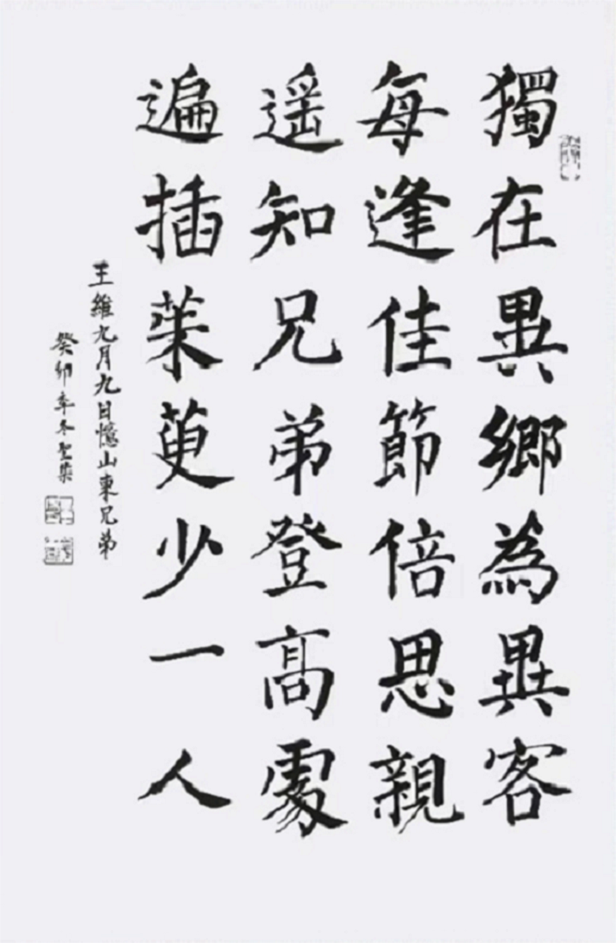 獨在異鄉為異客
每逢佳節倍思親
遥知兄弟登高處
遍插茱萸少一人
王維九月九日憶山東兄弟
癸卯年冬聖英